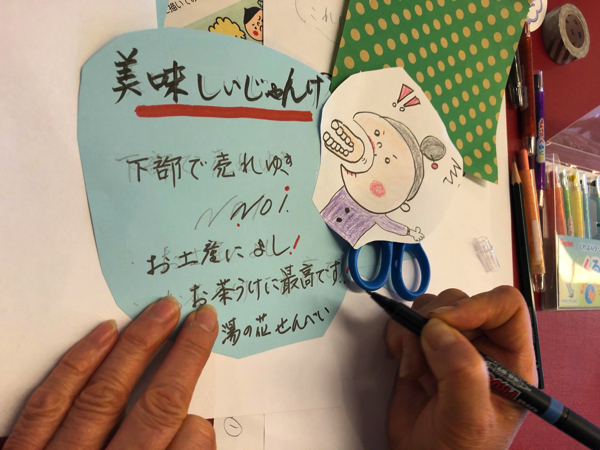 美味しいじゃんけ
下部で売れゆき
No1.
お土産によし!
お茶うけに最高です!
湯の花せんべい
!!